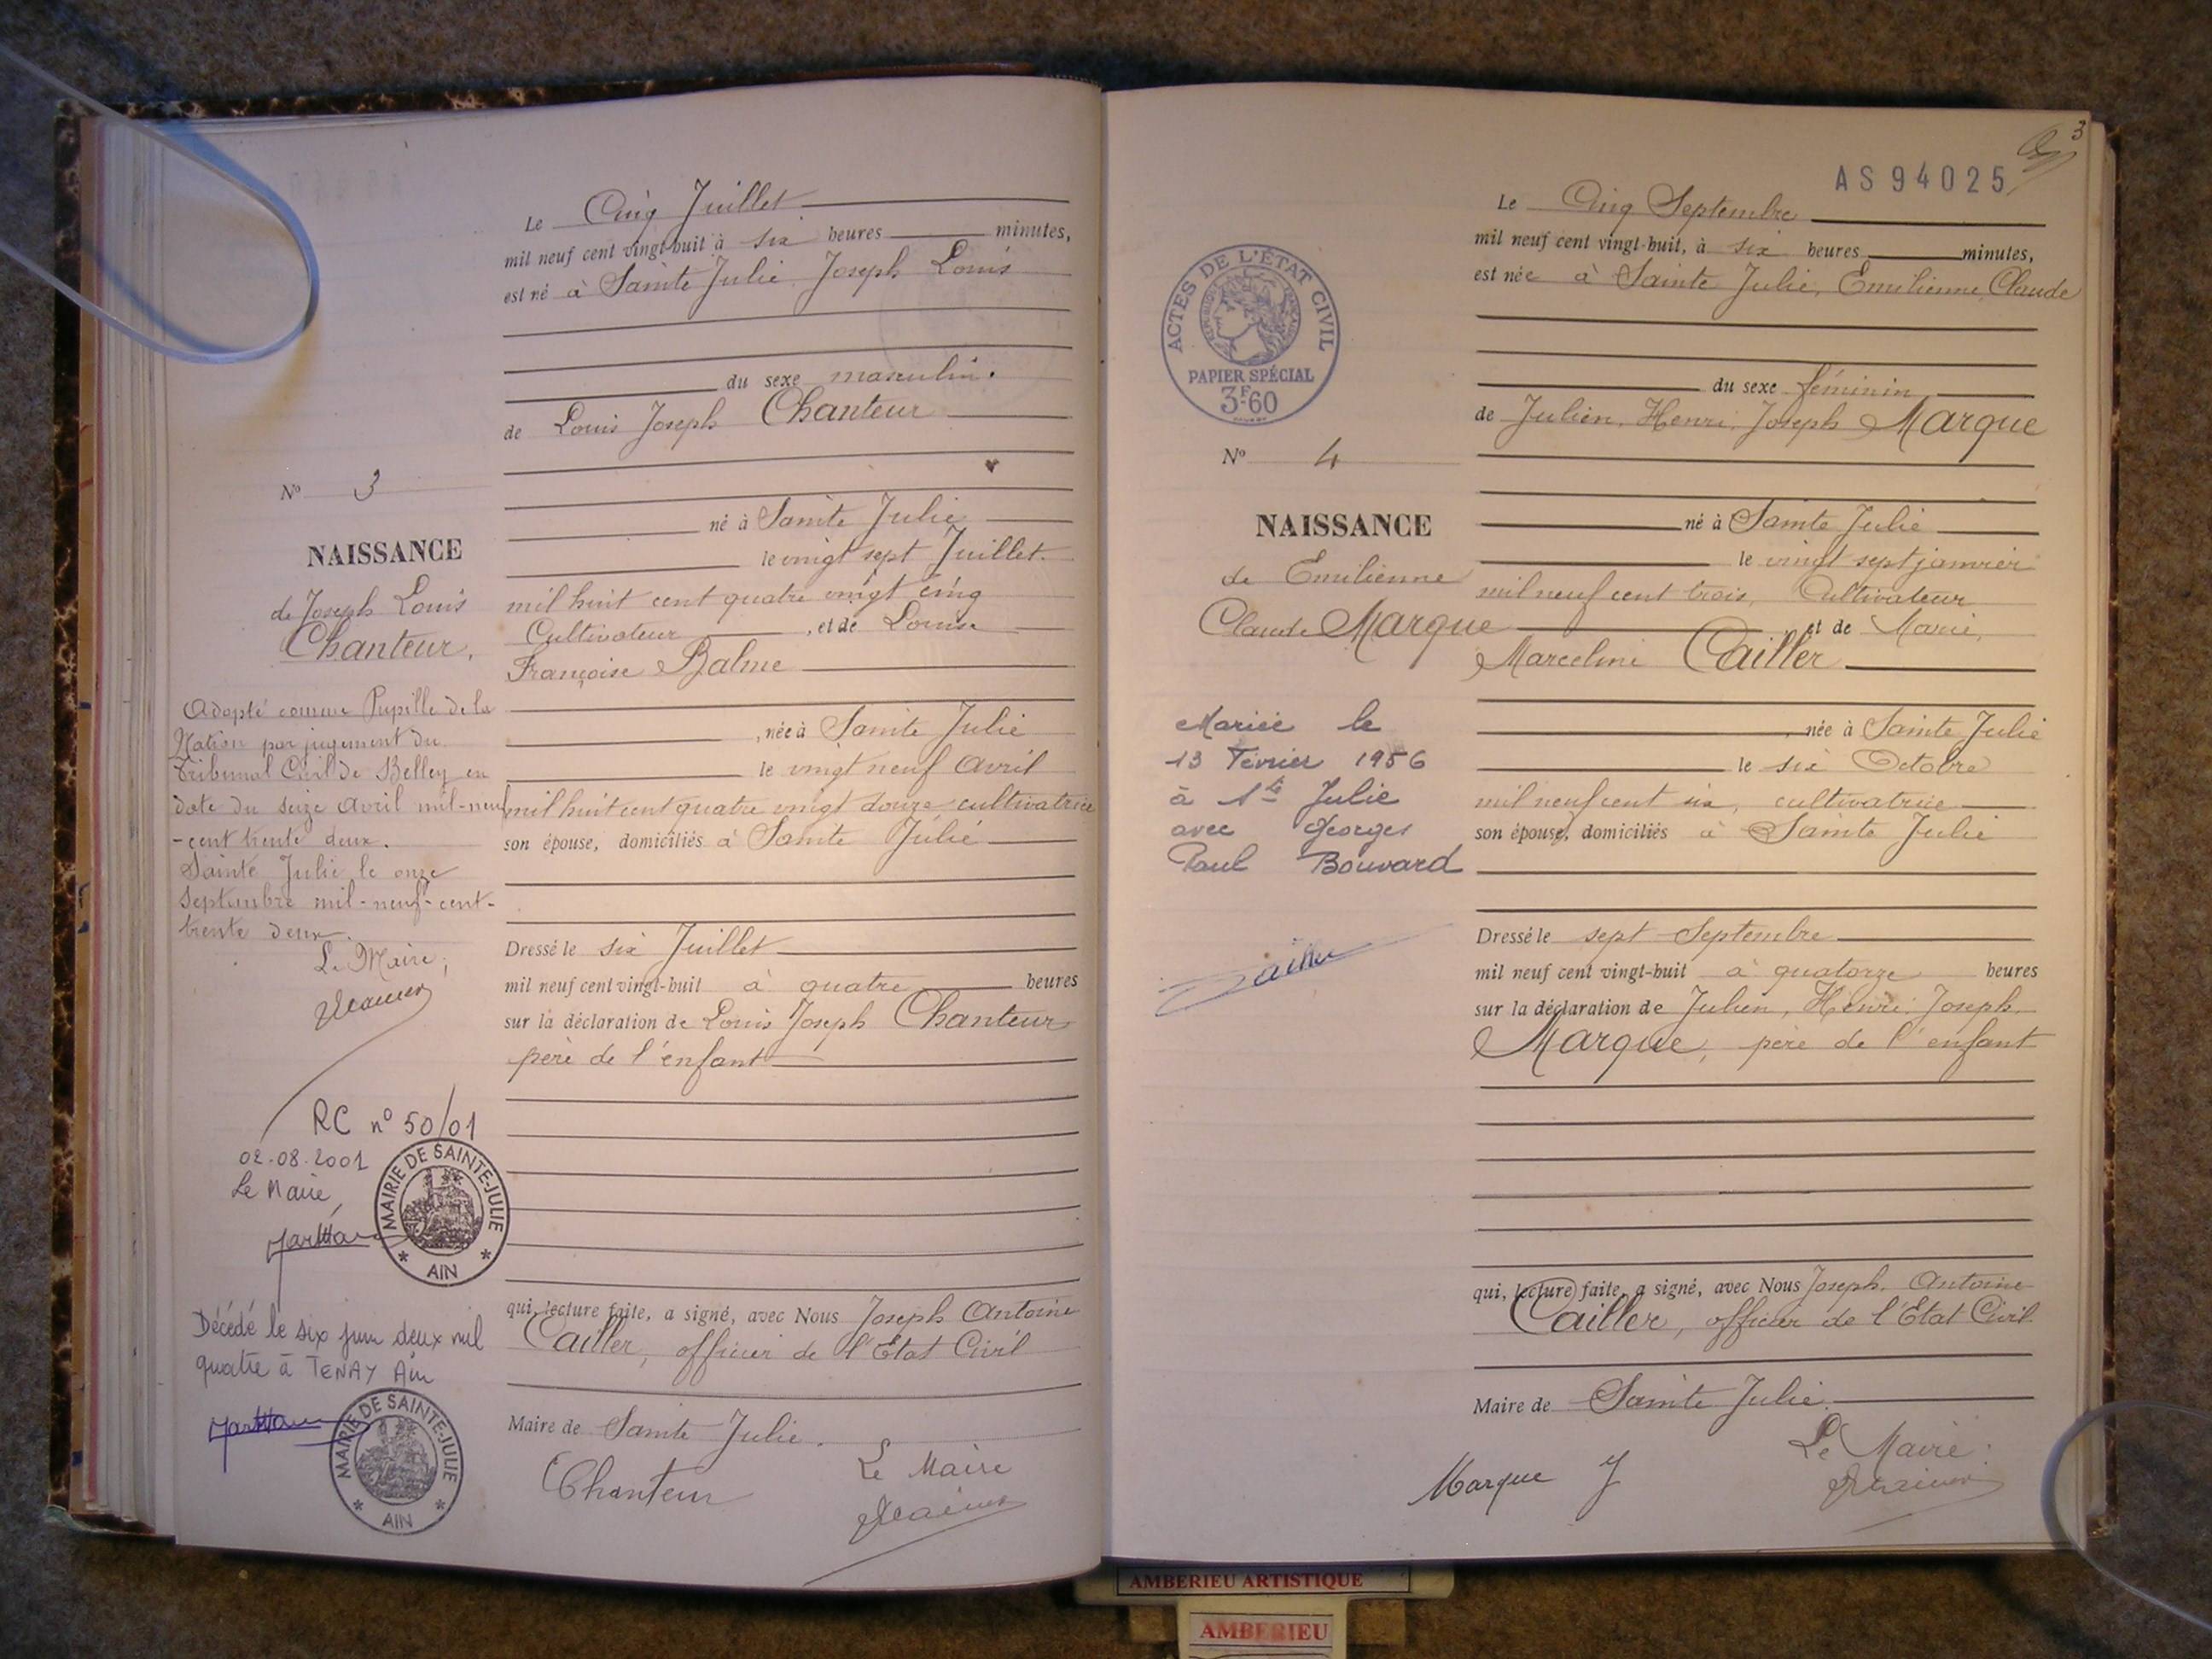 Le Cinq Juillet
mil neuf cent vingt-huit à six heures minutes,
est né à Sainte Julie, Joseph Louis
du sexe masculin.
de Louis Joseph Chanteur
né à Sainte Julie
le vingt sept Juillet
mil huit cent quatre vingt cinq
Cultivateur, et de Louise
Françoise Balme
, née à Sainte Julie
le vingt neuf Avril
mil huit cent quatre vingt douze cultivatrice
son épouse, domiciliés à Sainte Julie
Dressé le six Juillet
mil neuf cent vingt-huit à quatre heures
sur la déclaration de Louis Joseph Chanteur
père de l'enfant
qui, lecture faite, a signé, avec Nous Joseph Antoine
Cailler, officier de l'Etat Civil
Maire de Sainte Julie.
Chanteur
Le Maire
No 3
NAISSANCE
de Joseph Louis
Chanteur.
Adopté comme Pupille de la
Nation par jugement du
Tribunal Civil de Belley en
date du seize Avril mil-neuf
-cent trente deux.
Sainte Julie le onze
septembre mil-neuf-cent-
trente deux.
Le Maire,
RC n° 50/01
02.08.2001
Le Maire,
MAIRIE DE SAINTE-JULIE
* AIN *
Décédé le six juin deux mil
quatre à TENAY Ain
MAIRIE DE SAINTE-JULIE
* AIN *
3
AS 94025
Le Cinq Septembre
mil neuf cent vingt-huit, à six heures minutes,
est née à Sainte Julie, Emilienne, Claude
du sexe féminin
de Julien, Henri, Joseph Marque
né à Sainte Julie
le vingt sept janvier
mil neuf cent trois, Cultivateur
et de Marie,
Marceline Cailler
, née à Sainte Julie
le six Octobre
mil neuf cent six, cultivatrice
son épouse, domiciliés à Sainte Julie
Dressé le sept Septembre
mil neuf cent vingt-huit à quatorze heures
sur la déclaration de Julien, Henri, Joseph
Marque, père de l'enfant
qui, lecture faite, a signé, avec Nous Joseph Antoine
Cailler, officier de l'Etat Civil
Maire de Sainte Julie.
Le Maire:
Marque J
ACTES DE L'ÉTAT CIVIL
RÉPUBLIQUE FRANÇAISE
PAPIER SPÉCIAL
3F.60
No 4
NAISSANCE
de Emilienne
Claude Marque
Mariée le
13 Février 1956
à Ste Julie
avec Georges
Paul Bouvard
AMBERIEU ARTISTIQUE
AMBERIEU